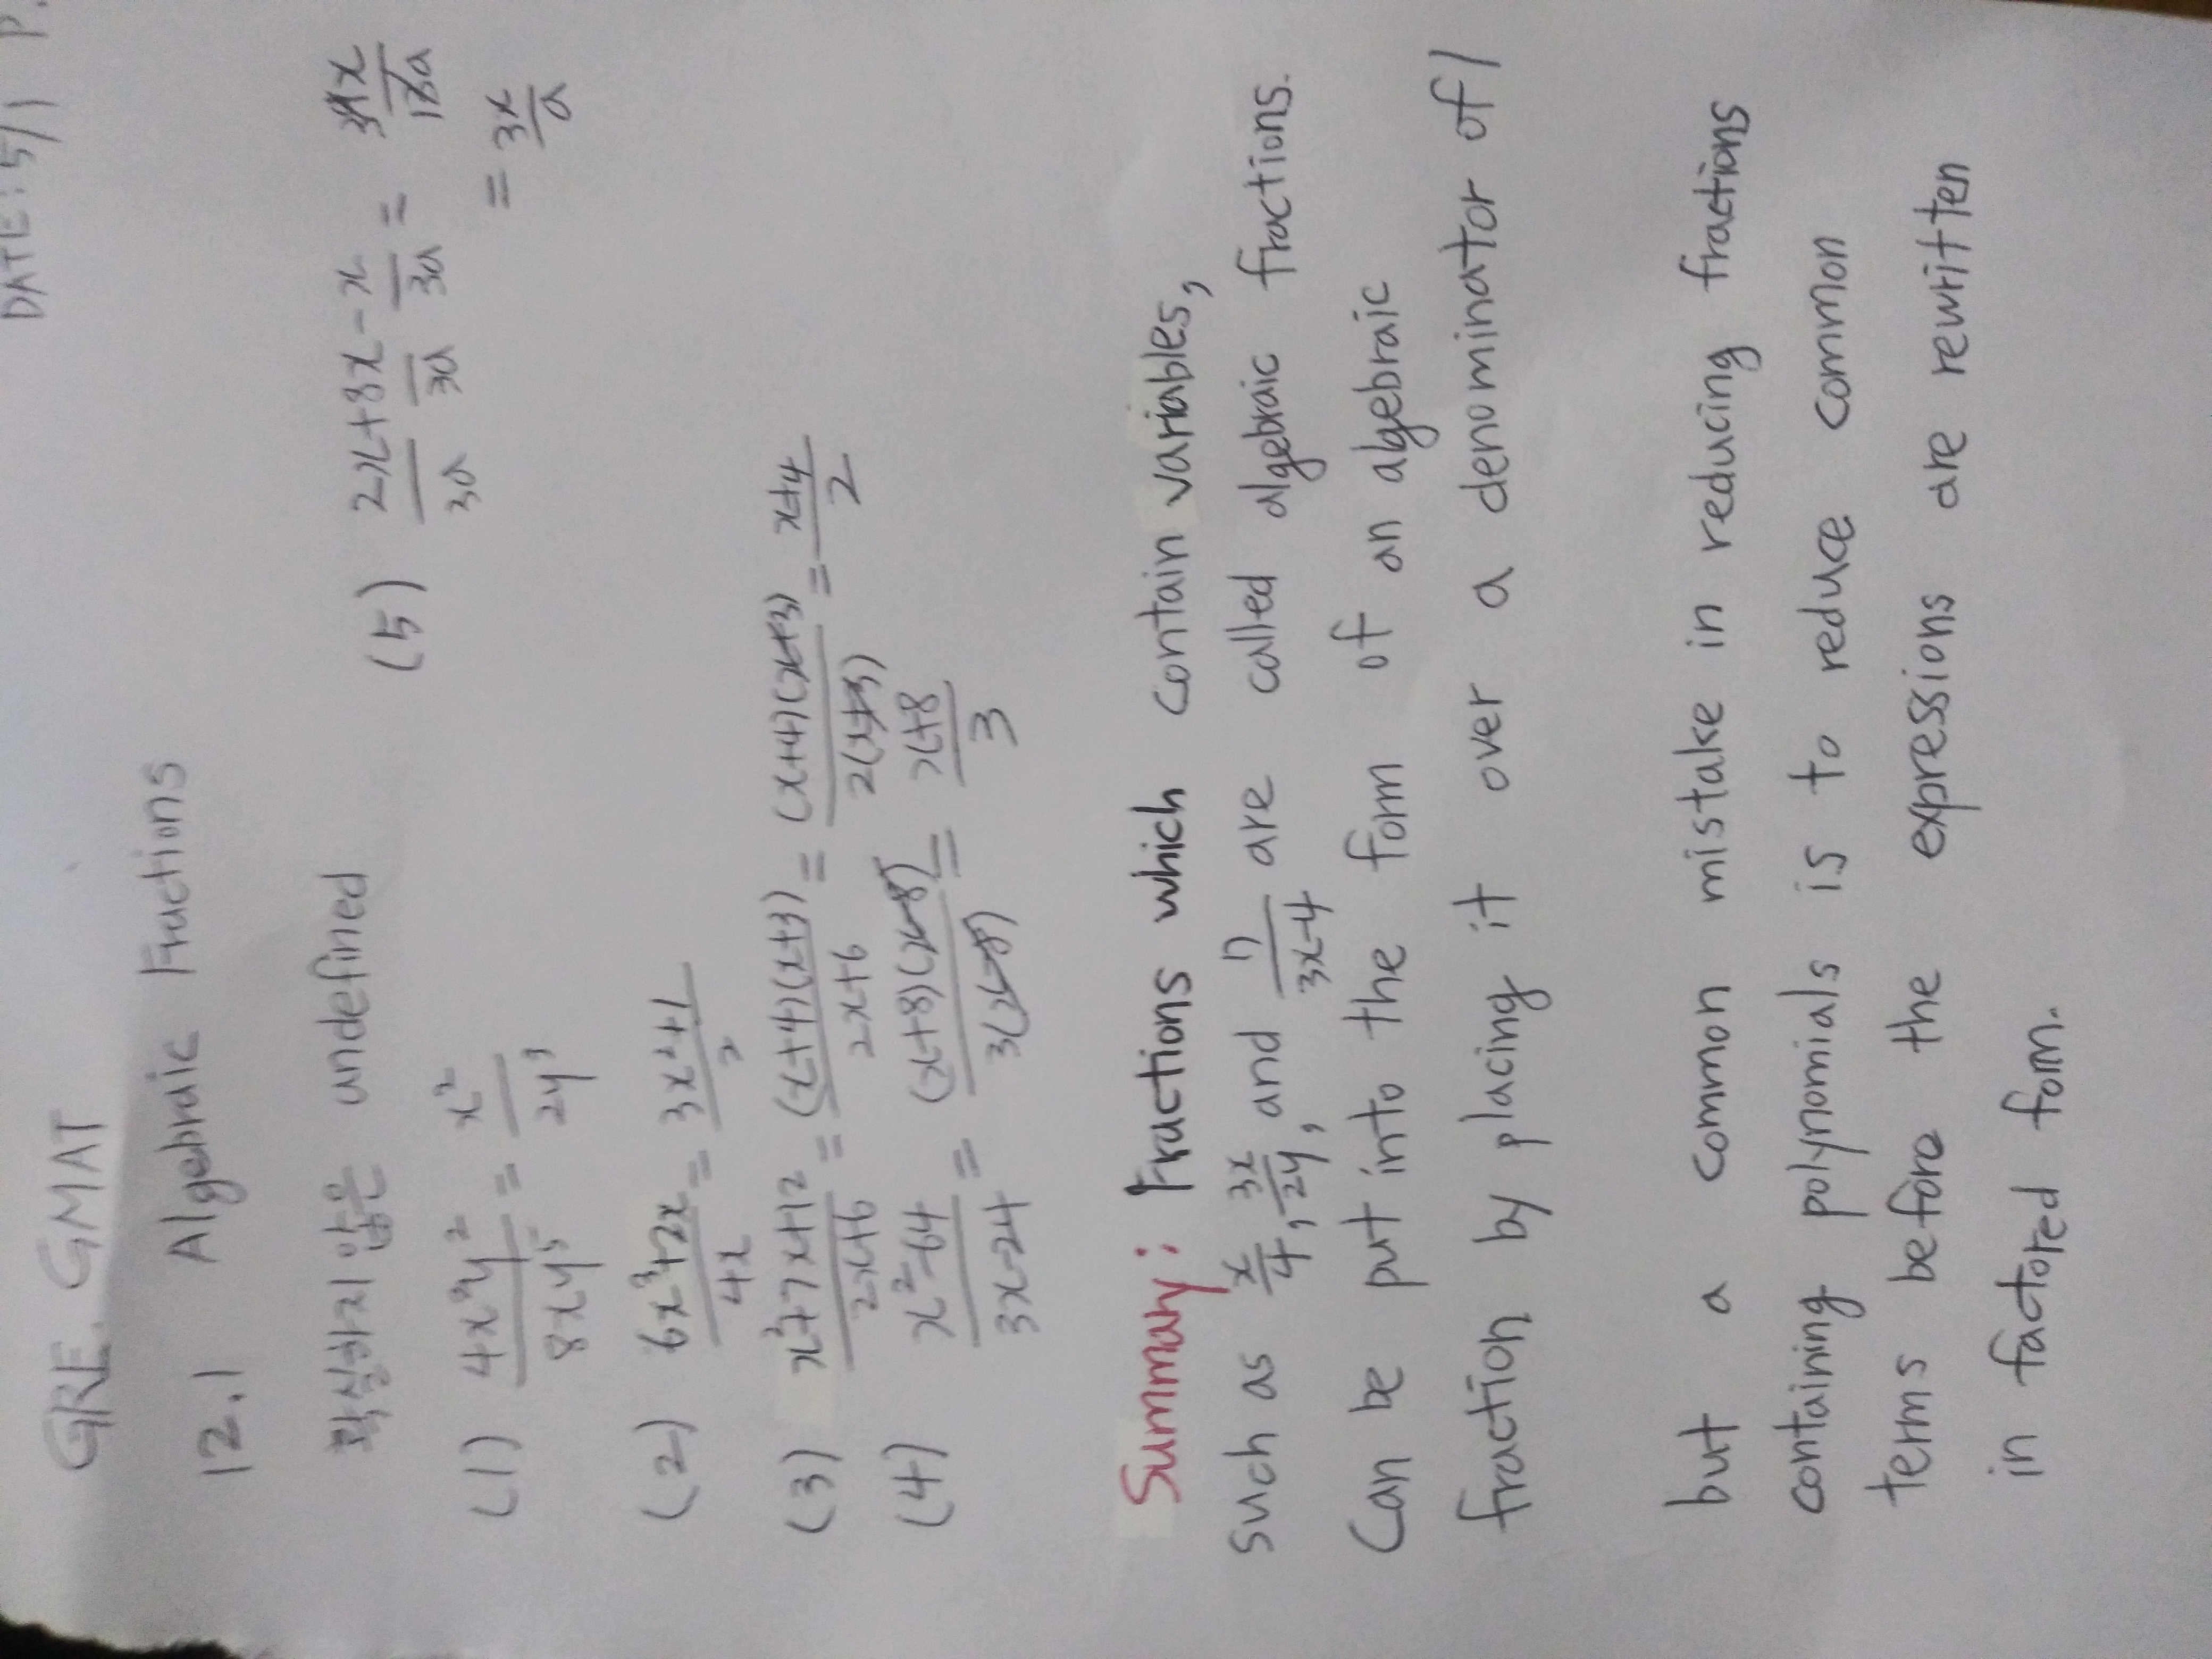 DATE: 5/1 P.
GRE GMAT
12.1 Algebraic Fractions
확실하지 않은 undefined
(1) 4x³y²/8xy⁵ = x²/2y³
(2) 6x³+2x/4x = 3x²+1/2
(3) x²+7x+12/2x+6 = (x+4)(x+3)/2x+6 = (x+4)(x+3)/2(x+3) = x+4/2
(4) x²-64/3x-24 = (x+8)(x-8)/3(x-8) = x+8/3
(5) 2x/3a + 8x/3a - x/3a =
= 3x/a
Summary: Fractions which contain variables,
such as x/4, 3x/2y, and 17/3x-4 are called algebraic fractions.
Can be put into the form of an algebraic
fraction by placing it over a denominator of 1
but a common mistake in reducing fractions
containing polynomials is to reduce common
terms before the expressions are rewritten
in factored form.